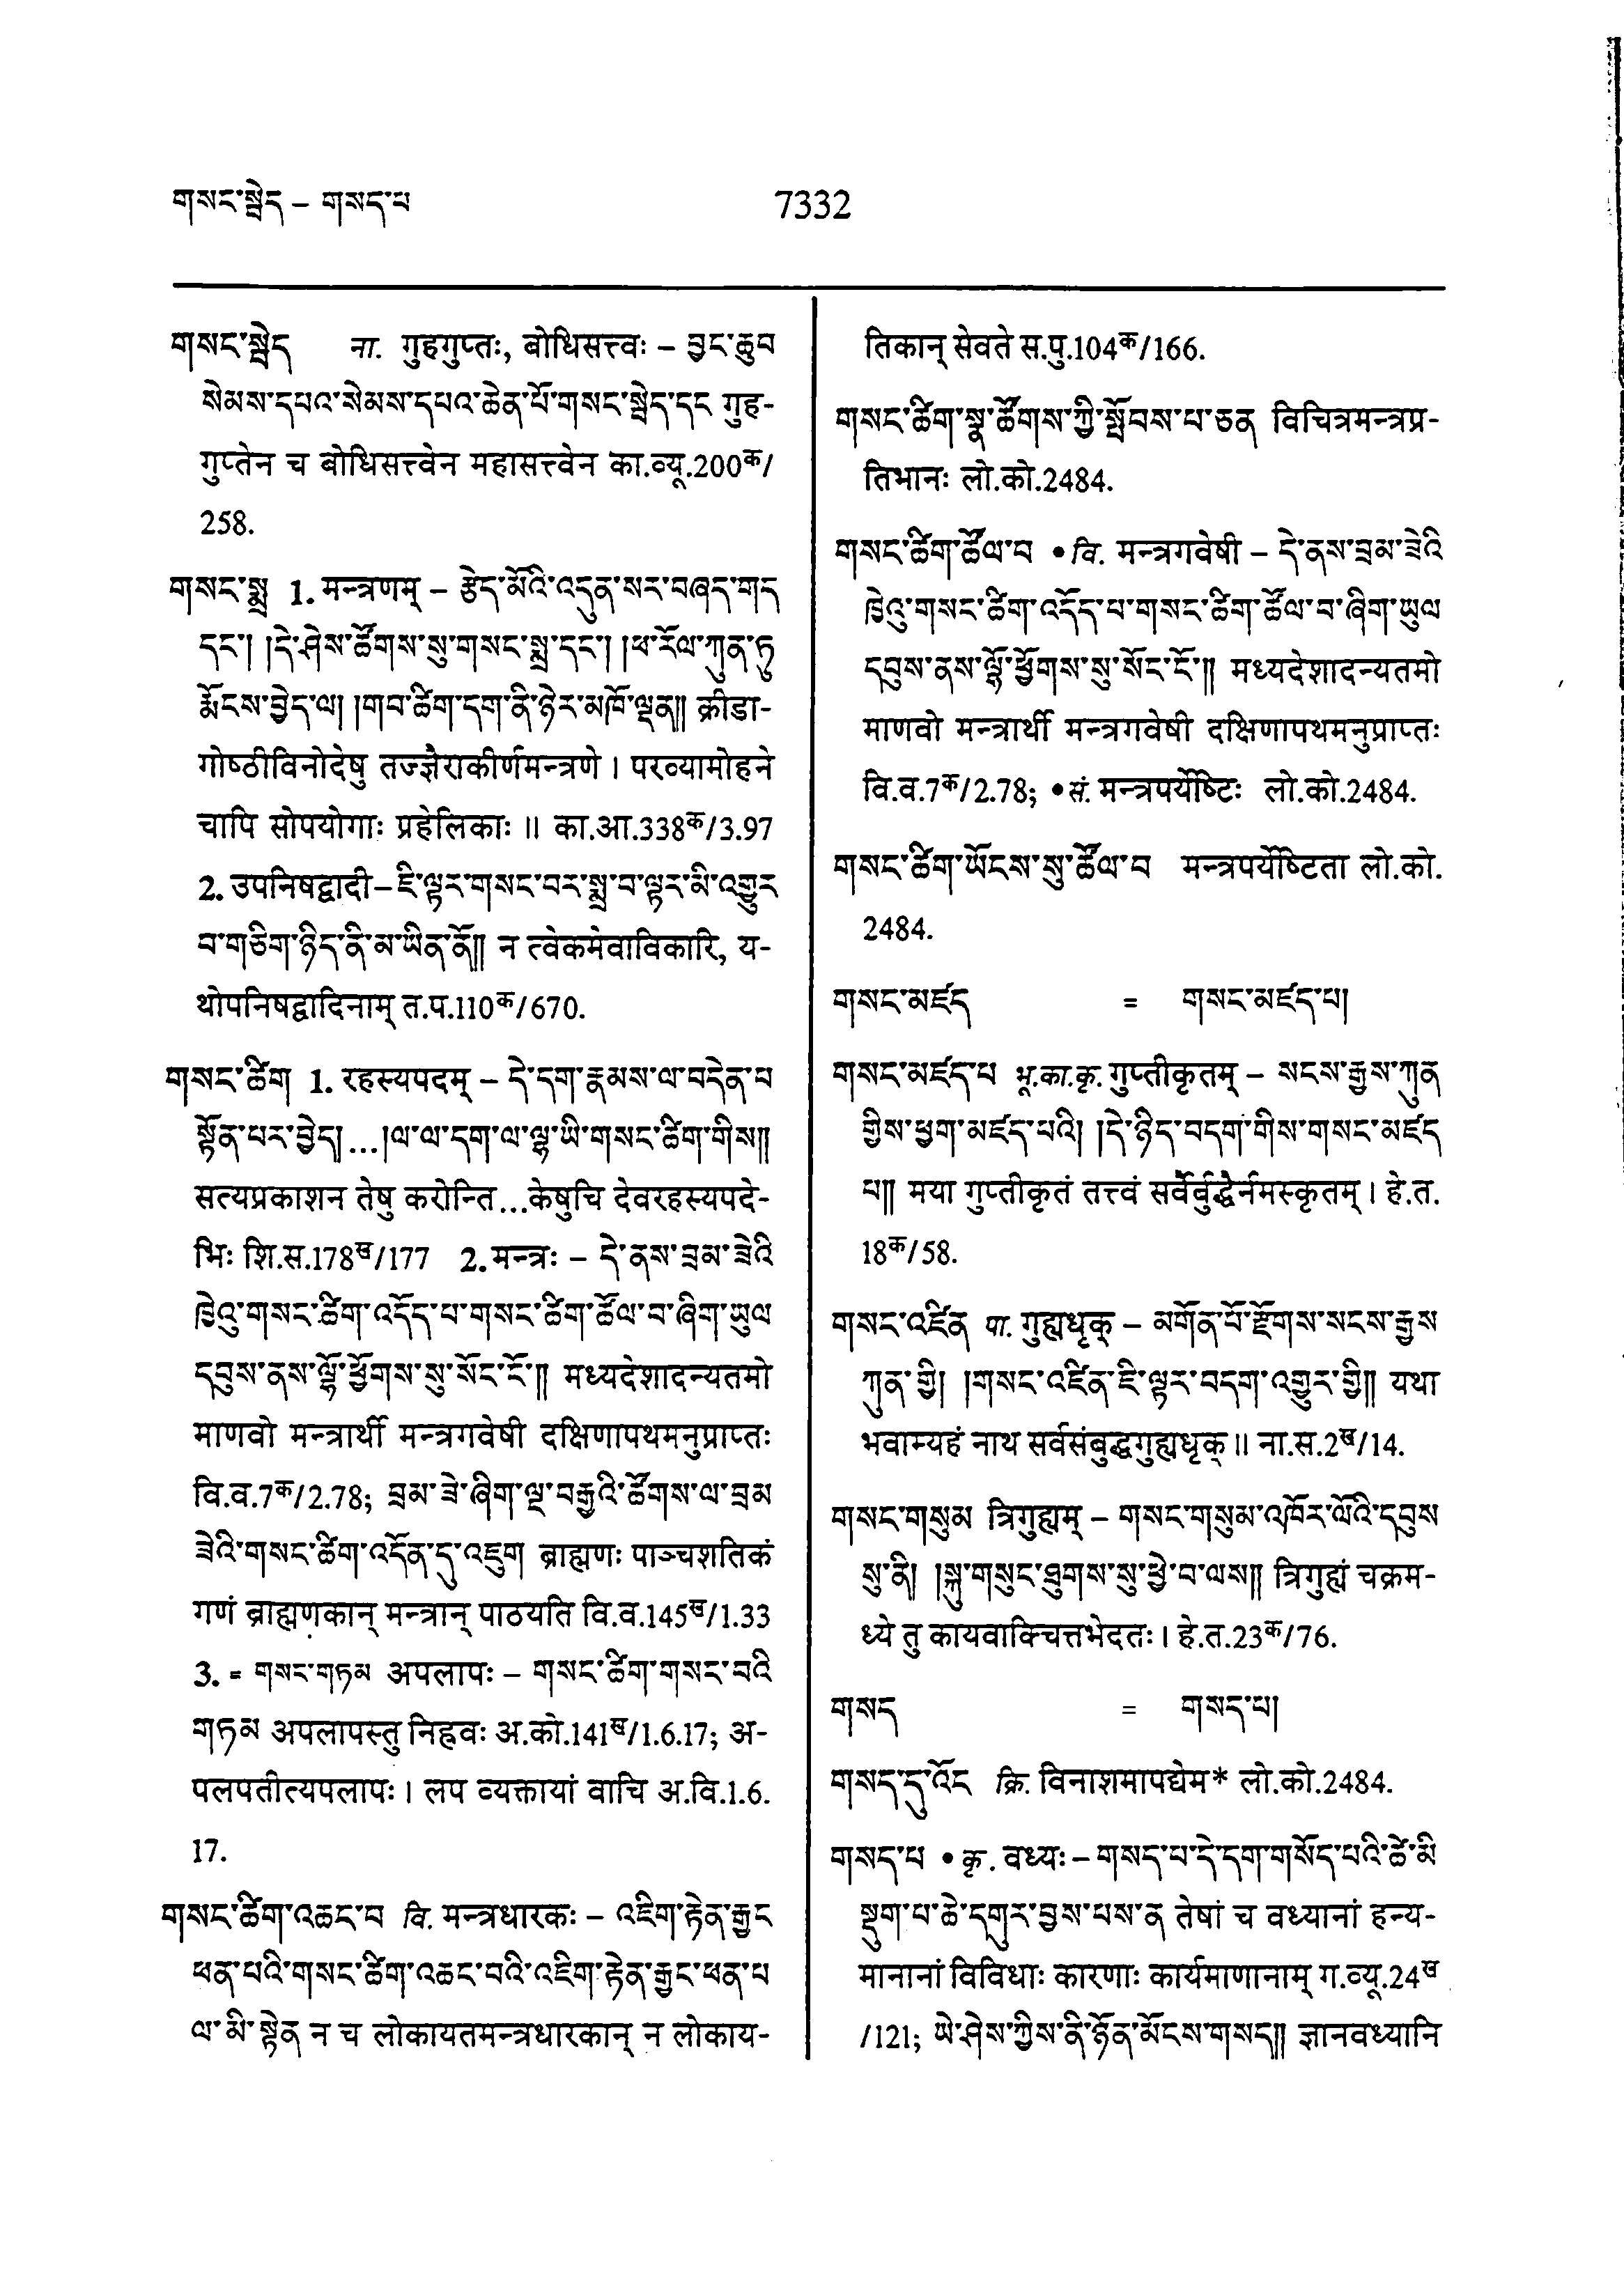 གསང་སྦེད – གསད་པ
7332
གསང་སྦེད ना. गुहगुप्तः, बोधिसत्त्वः – བྱང་ཆུབ
སེམས་དཔའ་སེམས་དཔའ་ཆེན་པོ་གསང་སྦེད་དང गुह-
गुप्तेन च बोधिसत्त्वेन महासत्त्वेन का.व्यू.200क/
258.
གསང་སྨྲ 1. मन्त्रणम् – རྩེད་མོའི་འདུན་སར་བཞད་གད
དང་། །དེ་ཤེས་ཚོགས་སུ་གསང་སྨྲ་དང་། །ཕ་རོལ་ཀུན་ཏུ
རྨོངས་བྱེད་ལ། །གབ་ཚིག་དག་ནི་ཉེར་མཁོ་ལྡན།། क्रीडा-
गोष्ठीविनोदेषु तज्ज्ञैराकीर्णमन्त्रणे । परव्यामोहने
चापि सोपयोगाः प्रहेलिकाः ॥ का.आ.338क/3.97
2. उपनिषद्वादी – ཇི་ལྟར་གསང་བར་སྨྲ་བ་ལྟར་མི་འགྱུར
བ་གཅིག་ཉིད་ནི་མ་ཡིན་ནོ།། न त्वेकमेवाविकारि, य-
थोपनिषद्वादिनाम् त.प.110क/670.
གསང་ཚིག 1. रहस्यपदम् – དེ་དག་རྣམས་ལ་བདེན་པ
སྟོན་པར་བྱེད། ... །ལ་ལ་དག་ལ་ལྷ་ཡི་གསང་ཚིག་གིས།།
सत्यप्रकाशन तेषु करोन्ति...केषुचि देवरहस्यपदे-
भिः शि.स.178ख/177 2. मन्त्रः – དེ་ནས་བྲམ་ཟེའི
ཁྱེའུ་གསང་ཚིག་འདོད་པ་གསང་ཚིག་ཚོལ་བ་ཞིག་ཡུལ
དབུས་ནས་ལྷོ་ཕྱོགས་སུ་སོང་ངོ་།། मध्यदेशादन्यतमो
माणवो मन्त्रार्थी मन्त्रगवेषी दक्षिणापथमनुप्राप्तः
वि.व.7क/2.78; བྲམ་ཟེ་ཞིག་ལྔ་བརྒྱའི་ཚོགས་ལ་བྲམ
ཟེའི་གསང་ཚིག་འདོན་དུ་འཇུག ब्राह्मणः पाञ्चशतिकं
गणं ब्राह्मणकान् मन्त्रान् पाठयति वि.व.145ख/1.33
3. = གསང་གཏམ अपलापः – གསང་ཚིག་གསང་བའི
གཏམ अपलापस्तु निह्नवः अ.को.141ख/1.6.17; अ-
पलपतीत्यपलापः । लप व्यक्तायां वाचि अ.वि.1.6.
17.
གསང་ཚིག་འཆང་བ वि. मन्त्रधारकः – འཇིག་རྟེན་རྒྱང
ཕན་པའི་གསང་ཚིག་འཆང་བའི་འཇིག་རྟེན་རྒྱང་ཕན་པ
ལ་མི་སྟེན न च लोकायतमन्त्रधारकान् न लोकाय-
तिकान् सेवते स.पु.104क/166.
གསང་ཚིག་སྣ་ཚོགས་ཀྱི་སྤོབས་པ་ཅན विचित्रमन्त्रप्र-
तिभानः लो.को.2484.
གསང་ཚིག་ཚོལ་བ • वि. मन्त्रगवेषी – དེ་ནས་བྲམ་ཟེའི
ཁྱེའུ་གསང་ཚིག་འདོད་པ་གསང་ཚིག་ཚོལ་བ་ཞིག་ཡུལ
དབུས་ནས་ལྷོ་ཕྱོགས་སུ་སོང་ངོ་།། मध्यदेशादन्यतमो
माणवो मन्त्रार्थी मन्त्रगवेषी दक्षिणापथमनुप्राप्तः
वि.व.7क/2.78; • सं. मन्त्रपर्येष्टिः लो.को.2484.
གསང་ཚིག་ཡོངས་སུ་ཚོལ་བ मन्त्रपर्येष्टिता लो.को.
2484.
གསང་མཛད = གསང་མཛད་པ།
གསང་མཛད་པ भू.का.कृ. गुप्तीकृतम् – སངས་རྒྱས་ཀུན
གྱིས་ཕྱག་མཛད་པའི། །དེ་ཉིད་བདག་གིས་གསང་མཛད
པ།། मया गुप्तीकृतं तत्त्वं सर्वैर्बुद्धैर्नमस्कृतम् । हे.त.
18क/58.
གསང་འཛིན पा. गुह्यधृक् – མགོན་པོ་རྫོགས་སངས་རྒྱས
ཀུན་གྱི། །གསང་འཛིན་ཇི་ལྟར་བདག་འགྱུར་གྱི།། यथा
भवाम्यहं नाथ सर्वसंबुद्धगुह्यधृक् ॥ ना.स.2ख/14.
གསང་གསུམ त्रिगुह्यम् – གསང་གསུམ་འཁོར་ལོའི་དབུས
སུ་ནི། །སྐུ་གསུང་ཐུགས་སུ་ཕྱེ་བ་ལས།། त्रिगुह्यं चक्रम-
ध्ये तु कायवाक्चित्तभेदतः । हे.त.23क/76.
གསད = གསད་པ།
གསད་དུ་འོང क्रि. विनाशमापद्येम* लो.को.2484.
གསད་པ • कृ. वध्यः – གསད་པ་དེ་དག་གསོད་པའི་ཚེ་མི
སྡུག་པ་ཆེ་དགུར་བྱས་པས་ན तेषां च वध्यानां हन्य-
मानानां विविधाः कारणाः कार्यमाणानाम् ग.व्यू.24ख
/121; ཡེ་ཤེས་ཀྱིས་ནི་ཉོན་མོངས་གསད།། ज्ञानवध्यानि